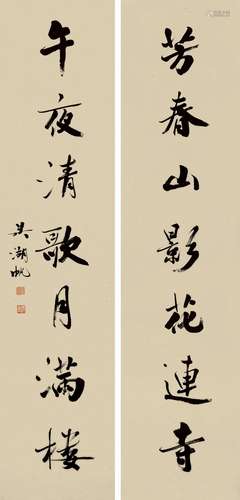 芳春山影花連寺
午夜清歌月滿樓
吳湖帆